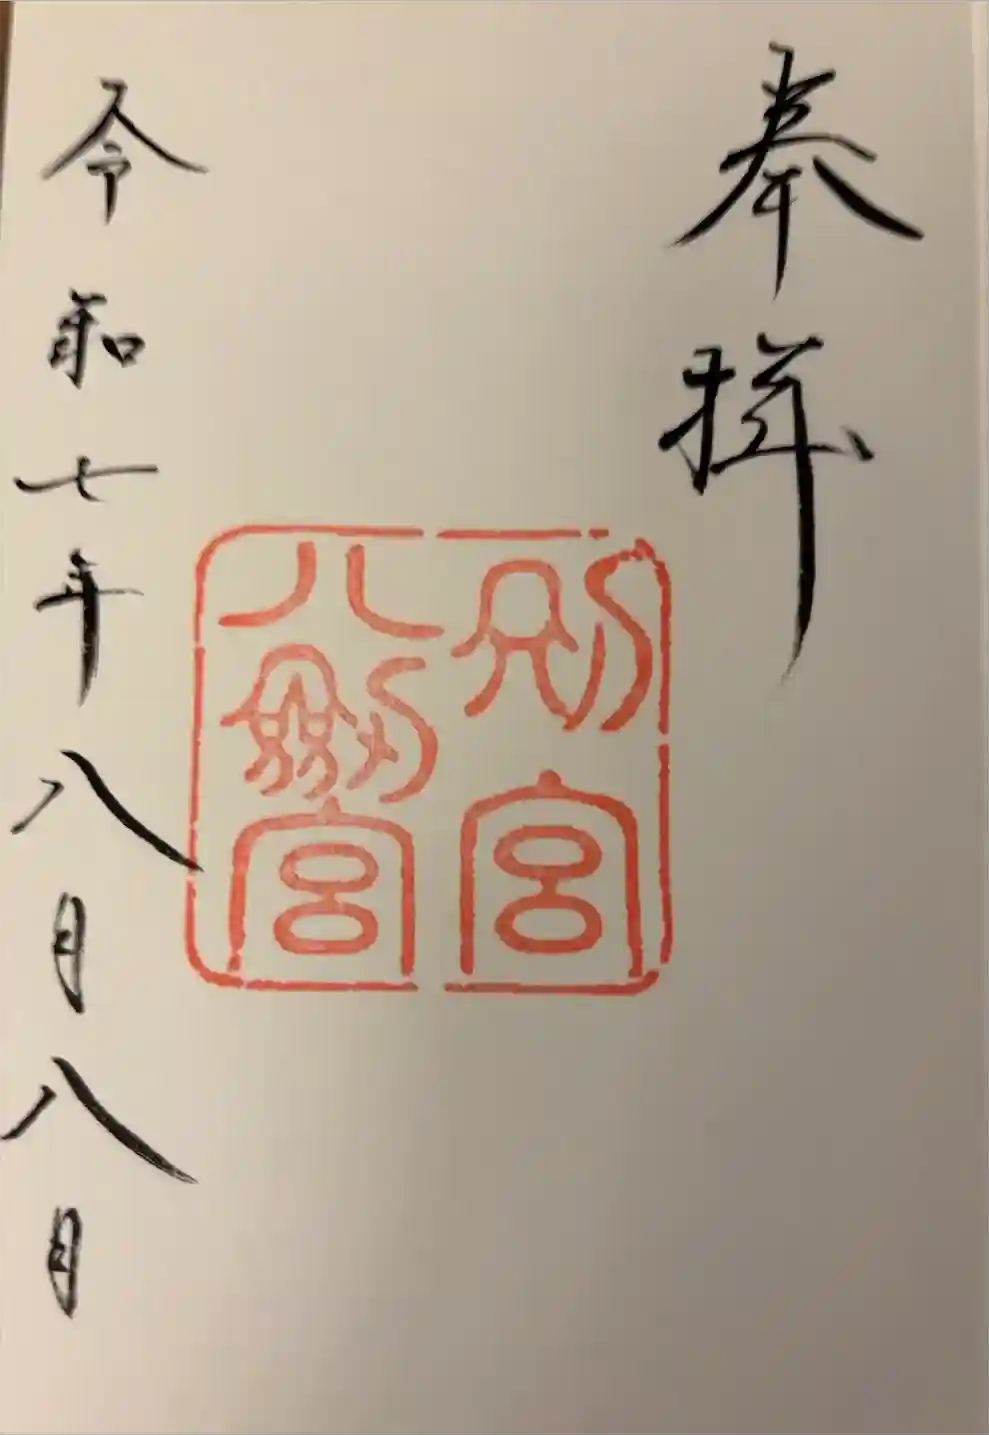 奉拝
別宮
八剱宮
令和七年八月八日